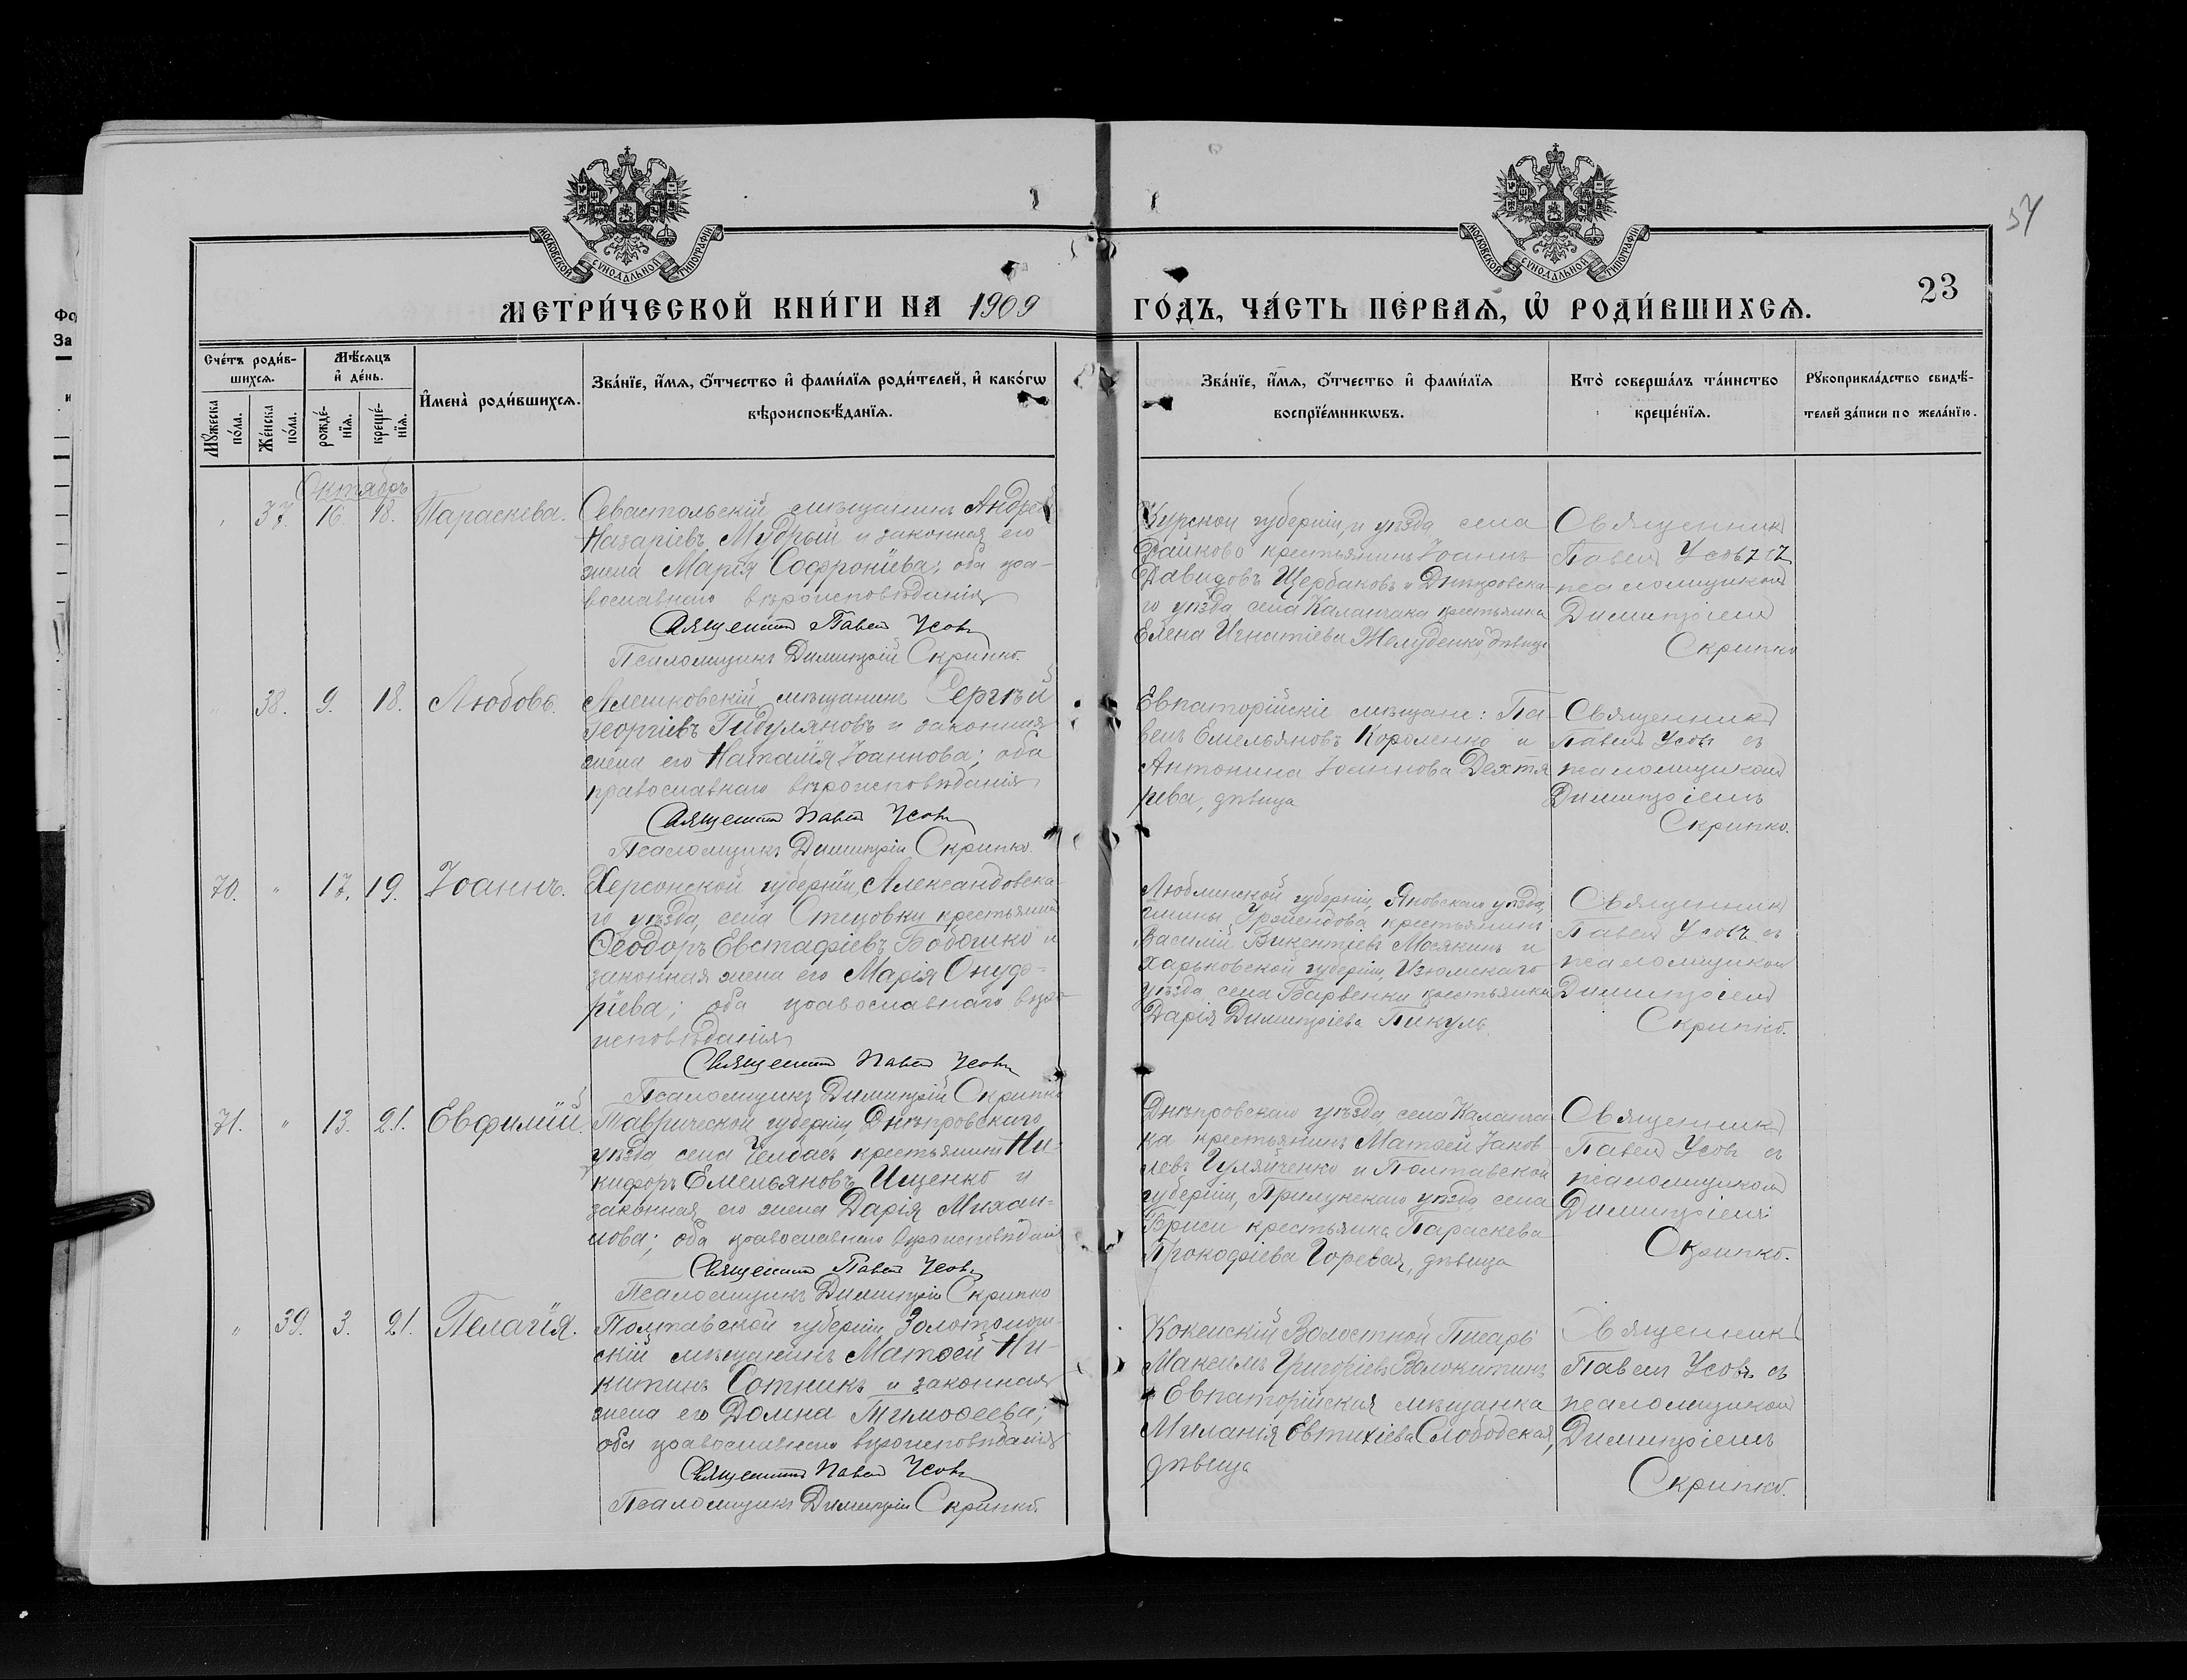 МОСКОВСКОЙ СѴНОДАЛЬНОЙ ТИПОГРАФІИ
МОСКОВСКОЙ СѴНОДАЛЬНОЙ ТИПОГРАФІИ
МЕТРИ́ЧЕСКОЙ КНИ́ГИ НА 1909 ГО́ДЪ, ЧА́СТЬ ПЕ́РВАѦ, Ѡ҆ РОДИ́ВШИХСѦ.
23
Сче́тъ роди́в-
шихсѧ.
Мꙋ́жеска по́ла.
Же́нска по́ла.
Мѣ́сѧцъ
и҆ де́нь.
рожде́-
нїѧ.
креще́-
нїѧ.
И҆мена̀ роди́вшихсѧ.
Зва́нїе, и҆́мѧ, ѻ҆́тчество и҆ фами́лїѧ роди́телей, и҆ како́гѡ
вѣроисповѣ́данїѧ.
Зва́нїе, и҆́мѧ, ѻ҆́тчество и҆ фами́лїѧ
воспрїе́мникѡвъ.
Кто̀ соверша́лъ та́инство
креще́нїѧ.
Рꙋкоприкла́дство свидѣ́-
телей за́писи по жела́нїю.
Октябрь
37. 16. 18. Параскева.
Севастопольскій мѣщанинъ Андрей
Назаріевъ Мудрый и законная его
жена Марія Софроніева; оба пра-
вославнаго вѣроисповѣданія
Священникъ Павелъ Усовъ
Псаломщикъ Димитрій Скрипко.
Курской губерніи, и уѣзда, села
крестьянинъ Іоаннъ
Давидовъ Щербаковъ и Днѣпровска-
го уѣзда села Каланчака крестьянка
Елена Игнатіева Желуденко, дѣвица
Священникъ
Павелъ Усовъ съ
псаломщикомъ
Димитріемъ
Скрипко
38. 9. 18. Любовь.
Алешковскій мѣщанинъ Сергѣй
Георгіевъ Гидуляновъ и законная
жена его Наталія Іоаннова; оба
православнаго вѣроисповѣданія
Священникъ Павелъ Усовъ
Псаломщикъ Димитрій Скрипко.
Евпаторійскіе мѣщане: Па-
велъ Емельяновъ Короленко и
Антонина Іоаннова Дехтя
рева, дѣвица
Священникъ
Павелъ Усовъ съ
псаломщикомъ
Димитріемъ
Скрипко.
70. " 17. 19. Іоаннъ.
Херсонской губерніи, Александровска-
го уѣзда, села Стецовки крестьянинъ
Ѳеодоръ Евстафіевъ Бабошко и
законная жена его Марія Онуф-
ріева; оба православнаго вѣро-
исповѣданія
Священникъ Павелъ Усовъ
Псаломщикъ Димитрій Скрипко
Люблинской губерніи, Яновскаго уѣзда,
гмины Уржендова крестьянинъ
Василій Викентіевъ Мосякинъ и
Харьковской губерніи, Изюмскаго
уѣзда села Барвенки крестьянка
Дарія Димитріева Пикуль
Священникъ
Павелъ Усовъ съ
псаломщикомъ
Димитріемъ
Скрипко.
71. " 13. 21. Евфимій.
Таврической губерніи, Днѣпровскаго
уѣзда села Челбасъ крестьянинъ Ни-
кифоръ Емельяновъ Ищенко и
законная его жена Дарія Михаи-
лова; оба православнаго вѣроисповѣданія
Священникъ Павелъ Усовъ
Псаломщикъ Димитрій Скрипко
Днѣпровскаго уѣзда, села Каланча
ка крестьянинъ Матѳей Іаков-
левъ Гуляйченко и Полтавской
губерніи, Прилукскаго уѣзда, села
крестьянка Параскева
Прокофіева Горевая, дѣвица
Священникъ
Павелъ Усовъ съ
псаломщикомъ
Димитріемъ
Скрипко.
" 39. 3. 21. Пелагія.
Полтавской губерніи Золотонош-
скій мѣщанинъ Матѳей Ни-
китинъ Сотникъ и законная
жена его Домна Тимоѳеева;
оба православнаго вѣроисповѣданія
Священникъ Павелъ Усовъ
Псаломщикъ Димитрій Скрипко.
Кокейскій Волостной Писарь
Максимъ Григоріевъ Волокитинъ
и Евпаторійская мѣщанка
Миланія Евтихіева Слободская,
дѣвица
Священникъ
Павелъ Усовъ съ
псаломщикомъ
Димитріемъ
Скрипко.